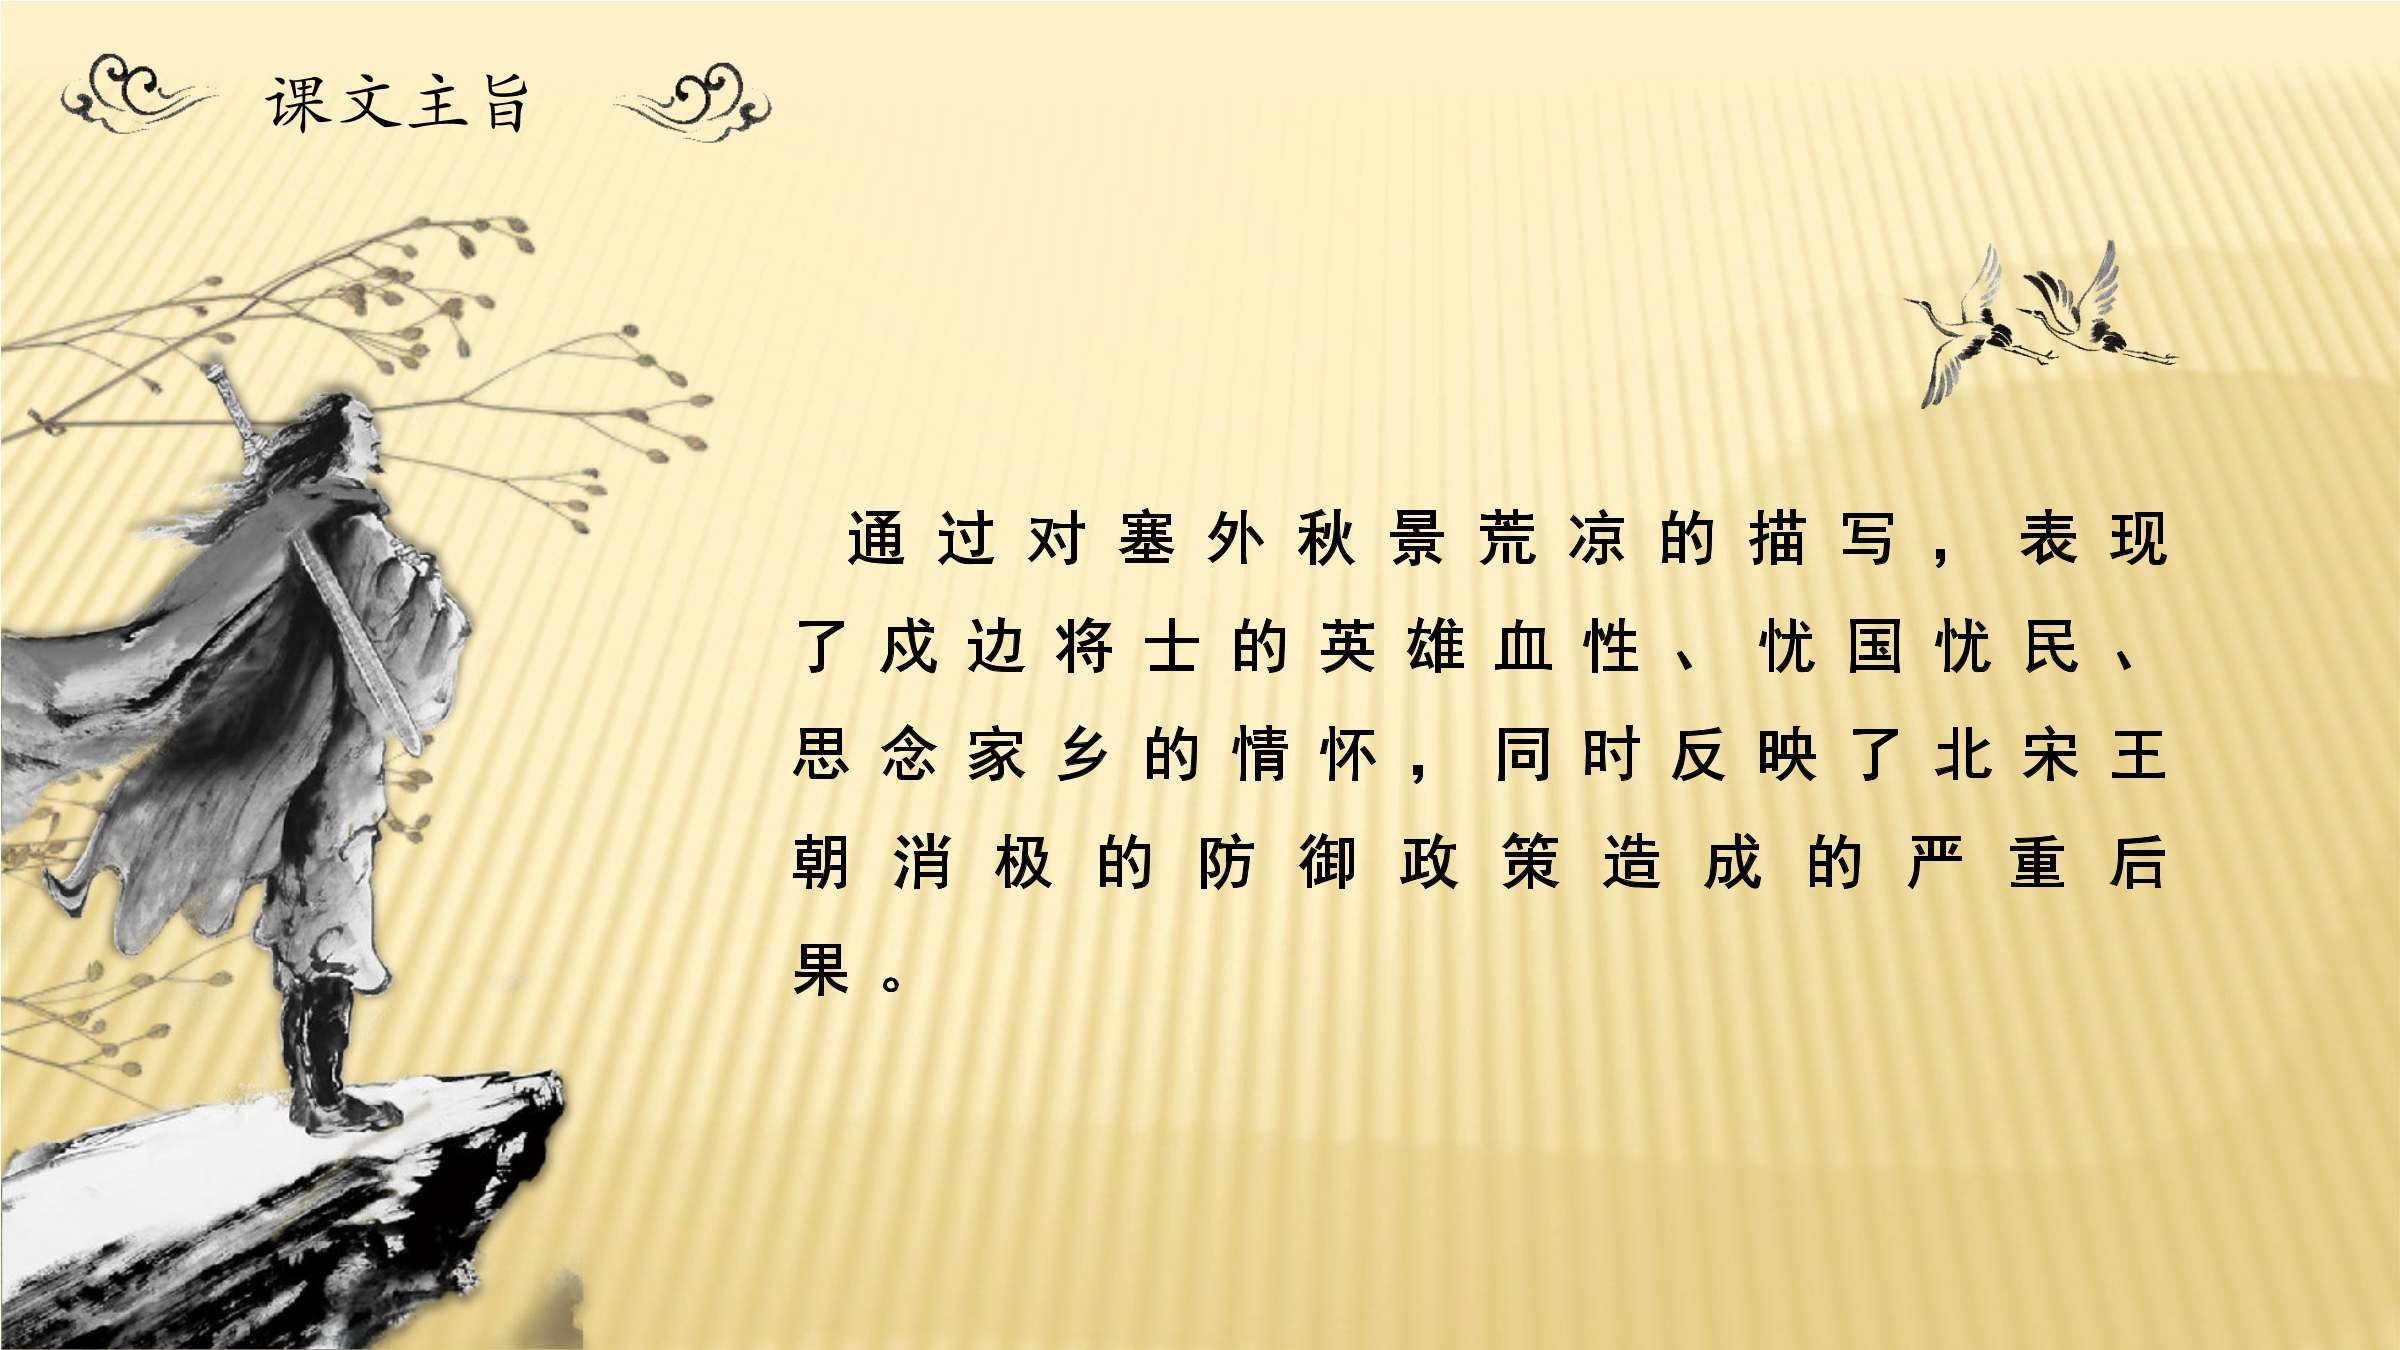 课文主旨
通过对塞外秋景荒凉的描写，表现
了戍边将士的英雄血性、忧国忧民、
思念家乡的情怀，同时反映了北宋王
朝消极的防御政策造成的严重后
果。